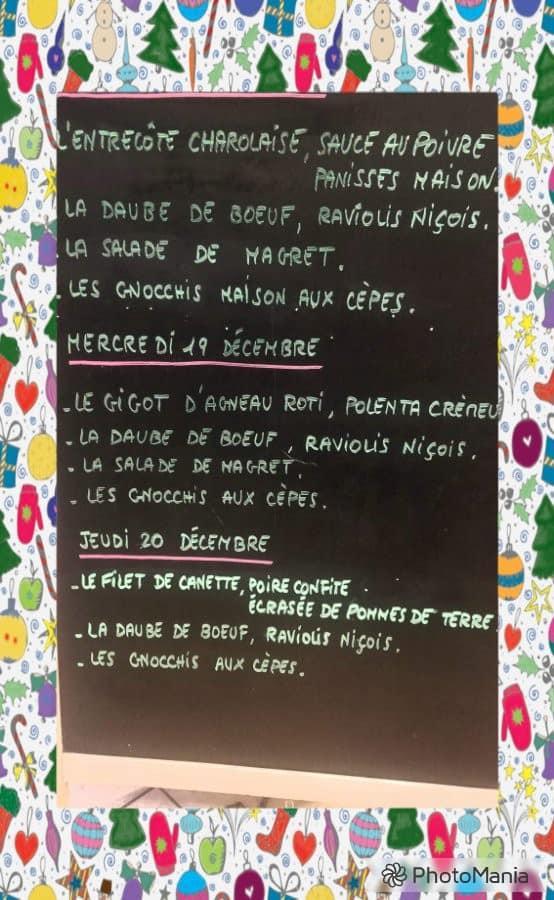 L'ENTRECÔTE CHAROLAISE, SAUCE AU POIVRE
PANISSES MAISON.
LA DAUBE DE BOEUF, RAVIOLIS NIÇOIS.
LA SALADE DE MAGRET.
LES GNOCCHIS MAISON AUX CÈPES.
MERCREDI 19 DÉCEMBRE
- LE GIGOT D'AGNEAU ROTI, POLENTA CRÈMEU
- LA DAUBE DE BOEUF, RAVIOLIS NIÇOIS.
- LA SALADE DE MAGRET.
- LES GNOCCHIS AUX CÈPES.
JEUDI 20 DÉCEMBRE
- LE FILET DE CANETTE, POIRE CONFITE.
ÉCRASÉE DE POMMES DE TERRE
- LA DAUBE DE BOEUF, RAVIOLIS NIÇOIS.
- LES GNOCCHIS AUX CÈPES.
PhotoMania